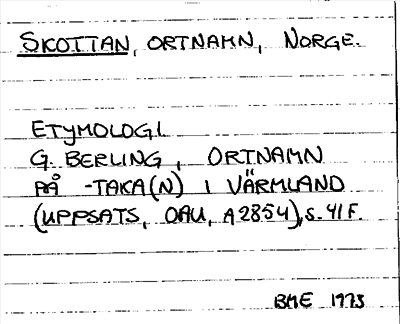 SKOTTAN, ORTNAMN, NORGE.
ETYMOLOGI.
G. BERLING, ORTNAMN
PÅ -TAKA(N) I VÄRMLAND
(UPPSATS, OAU, A2854), S. 41 F.
BME 1973